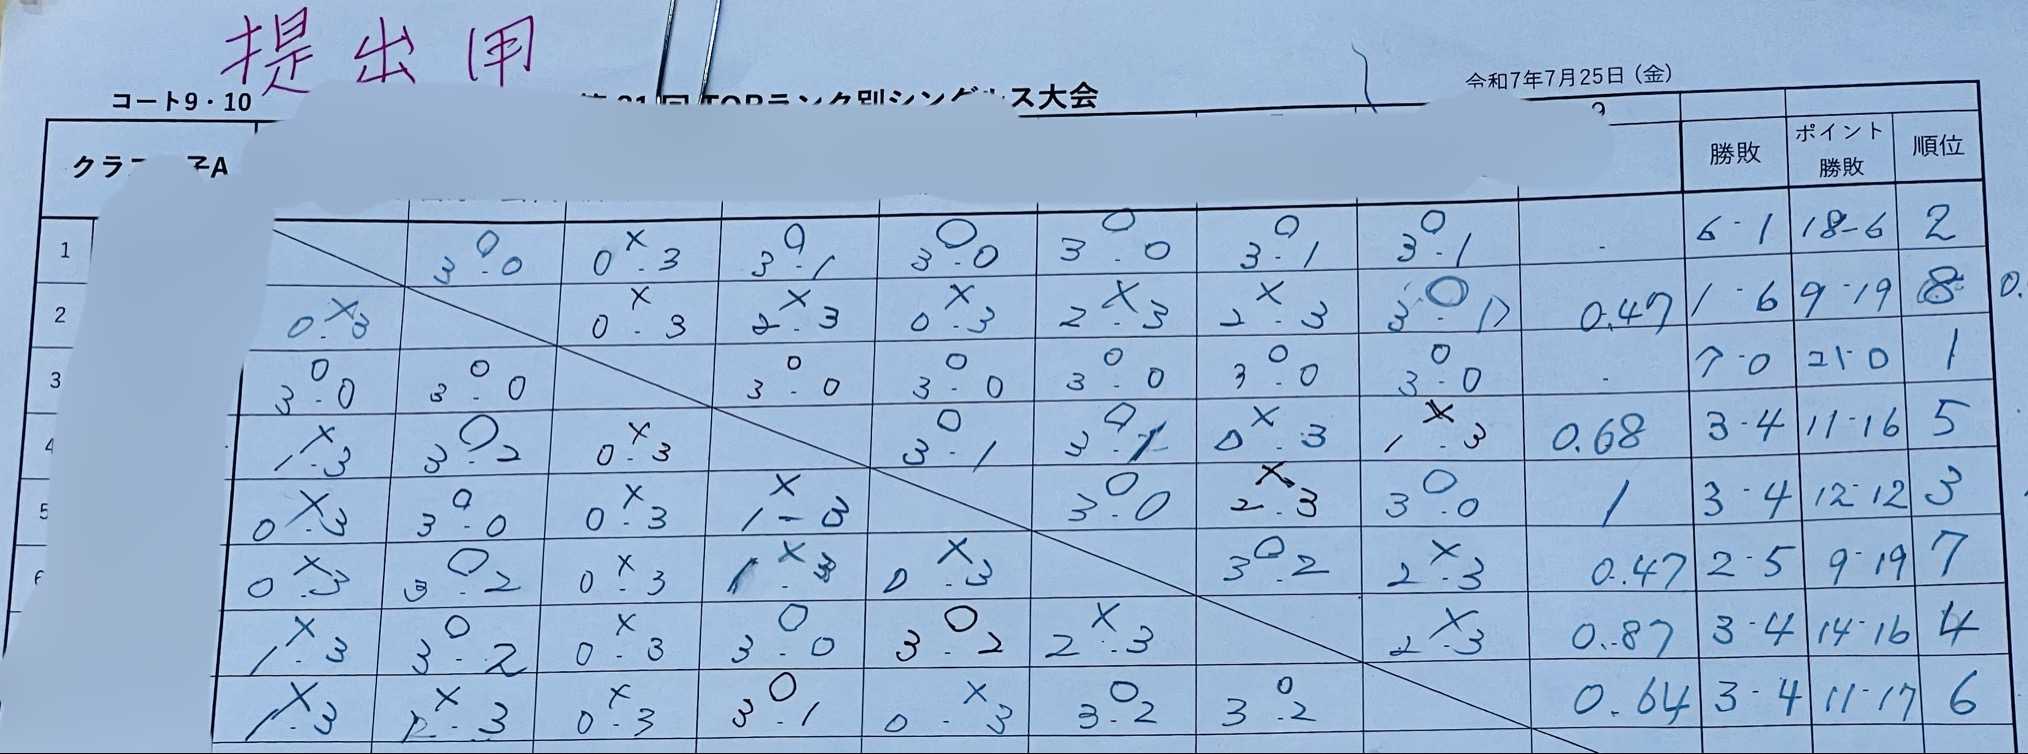 提出用
コート9・10 回 TOPランク別シングルス大会 令和7年7月25日（金）
クラ 子A 勝敗 ポイント勝敗 順位
1 ○ 3-0 × 0-3 ○ 3-1 ○ 3-0 ○ 3-0 ○ 3-1 ○ 3-1 6-1 18-6 2
2 × 0-3 × 0-3 × 2-3 × 0-3 × 2-3 × 2-3 ○ 3- 0.47 1-6 9-19 8 0.
3 ○ 3-0 ○ 3-0 ○ 3-0 ○ 3-0 ○ 3-0 ○ 3-0 ○ 3-0 7-0 21-0 1
4 × 1-3 ○ 3-2 × 0-3 ○ 3-1 ○ 3-1 × 0-3 × 1-3 0.68 3-4 11-16 5
5 × 0-3 ○ 3-0 × 0-3 × 1-3 ○ 3-0 × 2-3 ○ 3-0 1 3-4 12-12 3
6 × 0-3 ○ 3-2 × 0-3 × 1-3 × 0-3 ○ 3-2 × 2-3 0.47 2-5 9-19 7
× 1-3 ○ 3-2 × 0-3 ○ 3-0 ○ 3-2 × 2-3 × 2-3 0.87 3-4 14-16 4
× 1-3 × 2-3 × 0-3 ○ 3-1 × 0-3 ○ 3-2 ○ 3-2 0.64 3-4 11-17 6